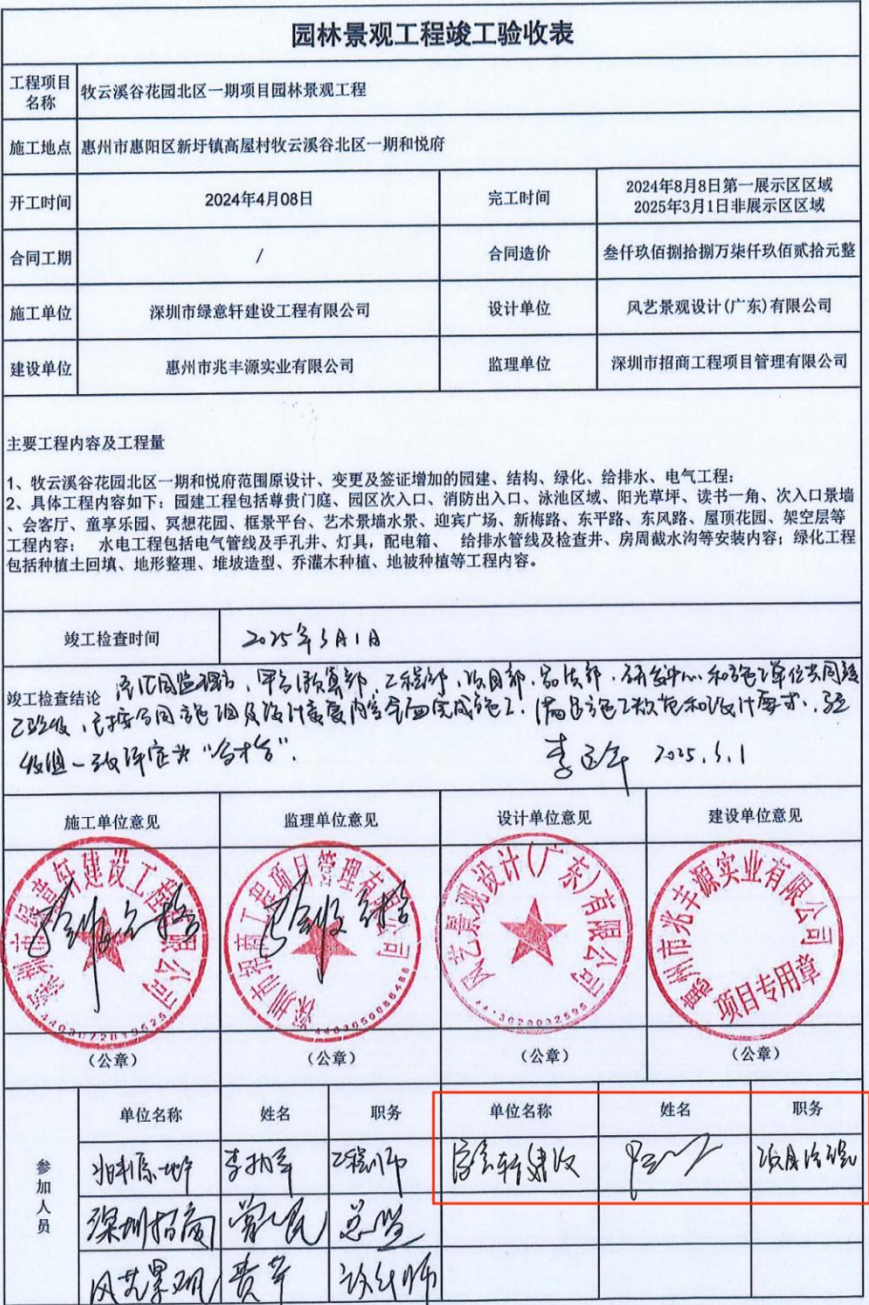 园林景观工程竣工验收表
工程项目名称 牧云溪谷花园北区一期项目园林景观工程
施工地点 惠州市惠阳区新圩镇高屋村牧云溪谷北区一期和悦府
开工时间 2024年4月08日 完工时间 2024年8月8日第一展示区区域
2025年3月1日非展示区区域
合同工期 / 合同造价 叁仟玖佰捌拾捌万柒仟玖佰贰拾元整
施工单位 深圳市绿意轩建设工程有限公司 设计单位 风艺景观设计(广东)有限公司
建设单位 惠州市兆丰源实业有限公司 监理单位 深圳市招商工程项目管理有限公司
主要工程内容及工程量
1、牧云溪谷花园北区一期和悦府范围原设计、变更及签证增加的园建、结构、绿化、给排水、电气工程;
2、具体工程内容如下: 园建工程包括尊贵门庭、园区次入口、消防出入口、泳池区域、阳光草坪、读书一角、次入口景墙
、会客厅、童享乐园、冥想花园、框景平台、艺术景墙水景、迎宾广场、新梅路、东平路、东风路、屋顶花园、架空层等
工程内容: 水电工程包括电气管线及手孔井、灯具,配电箱、 给排水管线及检查井、房周截水沟等安装内容; 绿化工程
包括种植土回填、地形整理、堆坡造型、乔灌木种植、地被种植等工程内容。
竣工检查时间 2025年3月1日
竣工检查结论 工程部、项目部、研发中心和施工单位共同竣
工验收,已按合同施工图及设计变更内容全面完成施工,满足施工规范和设计要求,验
收组一致评定为“合格”.
2025.3.1
施工单位意见 监理单位意见 设计单位意见 建设单位意见
深圳市绿意轩建设工程有限公司
验收合格
深圳市招商工程项目管理有限公司
验收合格
风艺景观设计(广东)有限公司
惠州市兆丰源实业有限公司
项目专用章
(公章) (公章) (公章) (公章)
参加人员
单位名称 姓名 职务 单位名称 姓名 职务
兆丰源地产 工程师
深圳招商 总监
风艺景观 黄军 设计师